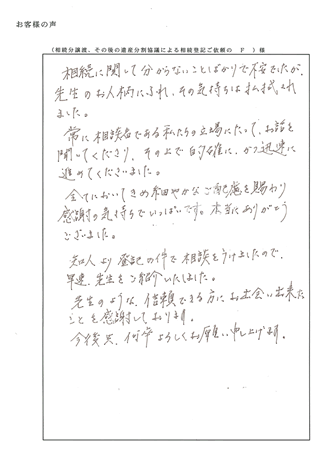 お客様の声
(相続分譲渡、その後の遺産分割協議による相続登記ご依頼の F )様
相続に関して分からないことばかりで不安でしたが、
先生のお人柄にふれ、その気持ちは払拭され
ました。
常に相談者である私たちの立場にたって、お話を
聞いてくださり、その上で的確に、かつ迅速に
進めてくださいました。
全てにおいてきめ細やかなご配慮を賜わり
感謝の気持ちでいっぱいです。本当にありがとう
ございました。
知人より登記の件で相談をうけましたので、
早速、先生をご紹介いたしました。
先生のような、信頼できる方にお出会い出来た
ことを感謝しております。
今後共、何卒よろしくお願い申し上げます。